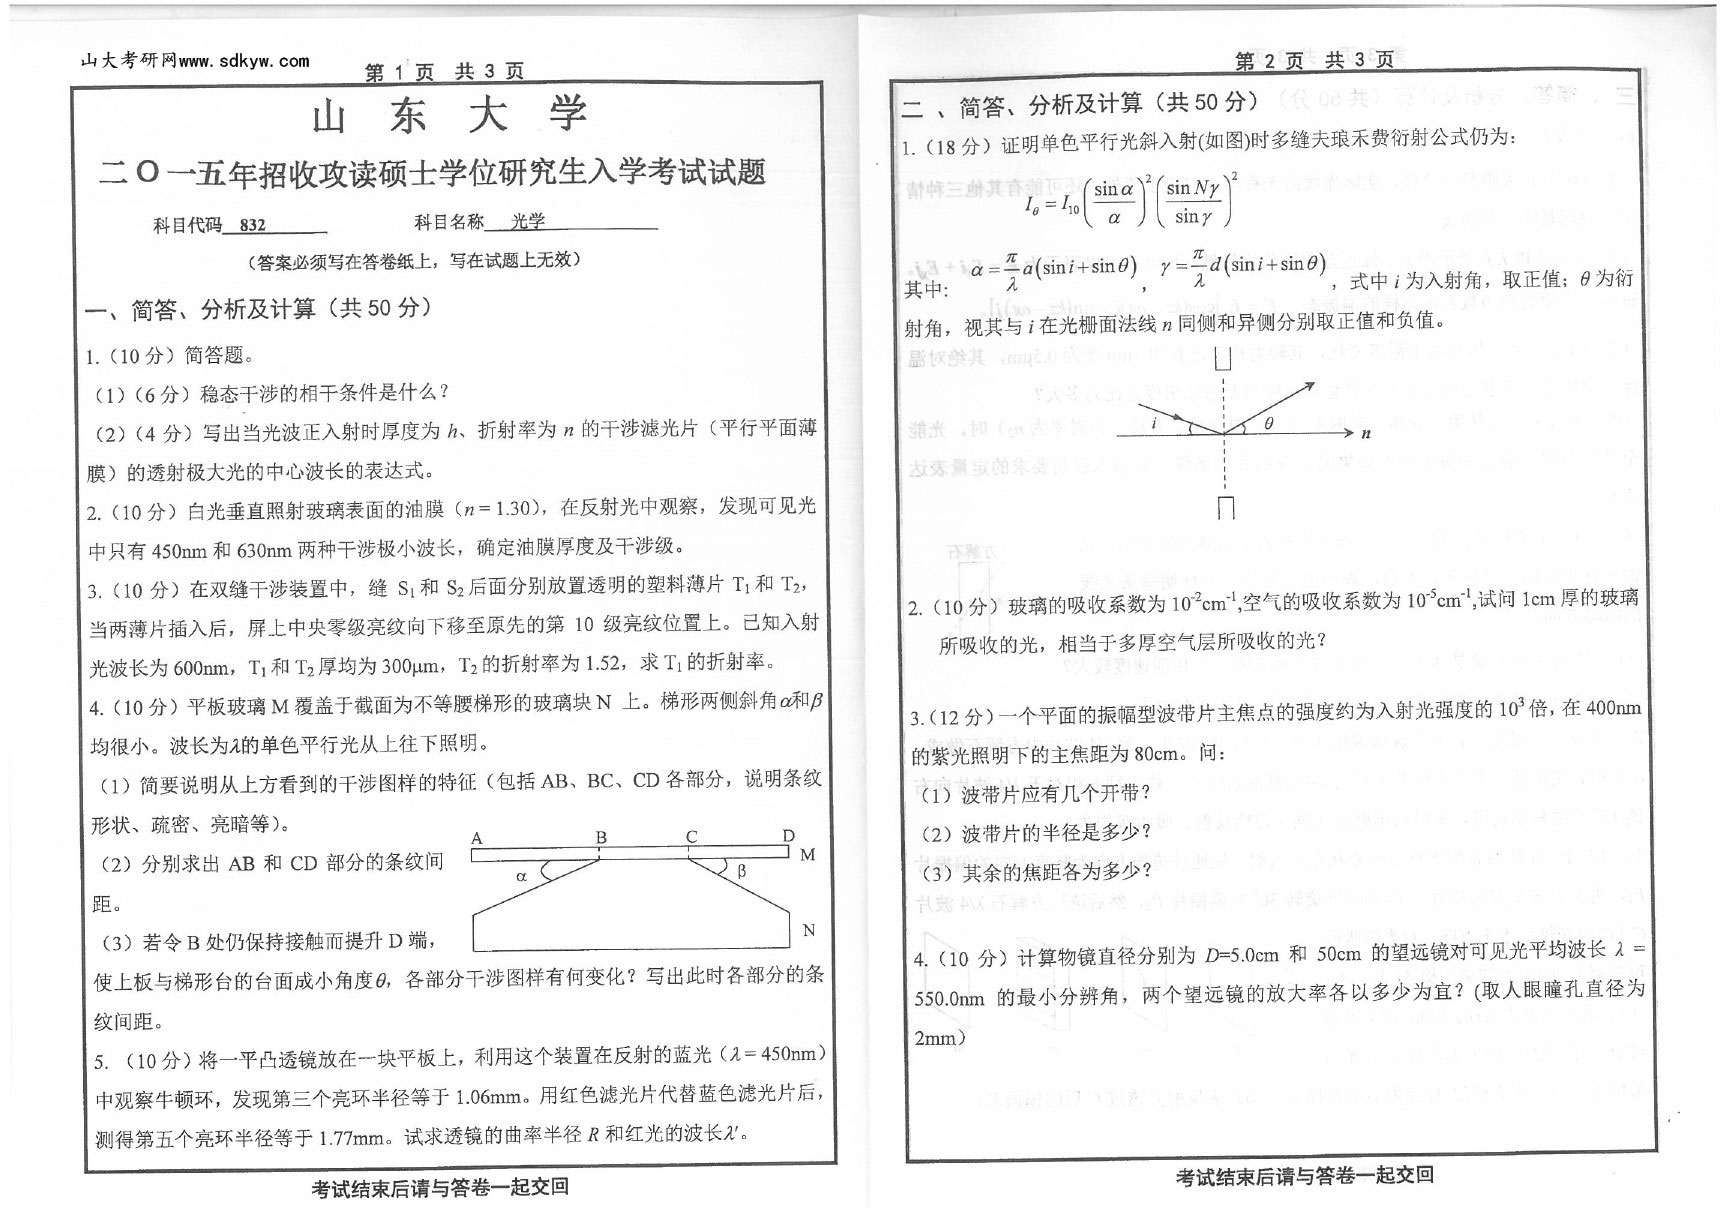 山大考研网www.sdkyw.com
第 1 页 共 3 页
山 东 大 学
二O一五年招收攻读硕士学位研究生入学考试试题
科目代码 832 科目名称 光学
（答案必须写在答卷纸上，写在试题上无效）
一、简答、分析及计算（共 50 分）
1.（10 分）简答题。
（1）（6 分）稳态干涉的相干条件是什么？
（2）（4 分）写出当光波正入射时厚度为 h、折射率为 n 的干涉滤光片（平行平面薄
膜）的透射极大光的中心波长的表达式。
2.（10 分）白光垂直照射玻璃表面的油膜（n = 1.30），在反射光中观察，发现可见光
中只有 450nm 和 630nm 两种干涉极小波长，确定油膜厚度及干涉级。
3.（10 分）在双缝干涉装置中，缝 S₁和 S₂后面分别放置透明的塑料薄片 T₁和 T₂，
当两薄片插入后，屏上中央零级亮纹向下移至原先的第 10 级亮纹位置上。已知入射
光波长为 600nm，T₁和 T₂厚均为 300μm，T₂的折射率为 1.52，求 T₁的折射率。
4.（10 分）平板玻璃 M 覆盖于截面为不等腰梯形的玻璃块 N 上。梯形两侧斜角α和β
均很小。波长为λ的单色平行光从上往下照明。
（1）简要说明从上方看到的干涉图样的特征（包括 AB、BC、CD 各部分，说明条纹
形状、疏密、亮暗等）。
（2）分别求出 AB 和 CD 部分的条纹间
距。
（3）若令 B 处仍保持接触而提升 D 端，
A B C D
M
α β
N
使上板与梯形台的台面成小角度θ，各部分干涉图样有何变化？写出此时各部分的条
纹间距。
5. （10 分）将一平凸透镜放在一块平板上，利用这个装置在反射的蓝光（λ = 450nm）
中观察牛顿环，发现第三个亮环半径等于 1.06mm。用红色滤光片代替蓝色滤光片后，
测得第五个亮环半径等于 1.77mm。试求透镜的曲率半径 R 和红光的波长λ′。
考试结束后请与答卷一起交回
第 2 页 共 3 页
二 、简答、分析及计算（共 50 分）
1.（18 分）证明单色平行光斜入射(如图)时多缝夫琅禾费衍射公式仍为：
I_θ = I_10 (sin α / α)² (sin Nγ / sin γ)²
其中： α = π/λ a(sin i + sin θ) ， γ = π/λ d(sin i + sin θ) ，式中 i 为入射角，取正值；θ 为衍
射角，视其与 i 在光栅面法线 n 同侧和异侧分别取正值和负值。
i θ n
2.（10 分）玻璃的吸收系数为 10⁻²cm⁻¹,空气的吸收系数为 10⁻⁵cm⁻¹,试问 1cm 厚的玻璃
所吸收的光，相当于多厚空气层所吸收的光？
3.（12 分）一个平面的振幅型波带片主焦点的强度约为入射光强度的 10³ 倍，在 400nm
的紫光照明下的主焦距为 80cm。问：
（1）波带片应有几个开带？
（2）波带片的半径是多少？
（3）其余的焦距各为多少？
4.（10 分）计算物镜直径分别为 D=5.0cm 和 50cm 的望远镜对可见光平均波长 λ =
550.0nm 的最小分辨角，两个望远镜的放大率各以多少为宜？(取人眼瞳孔直径为
2mm）
考试结束后请与答卷一起交回